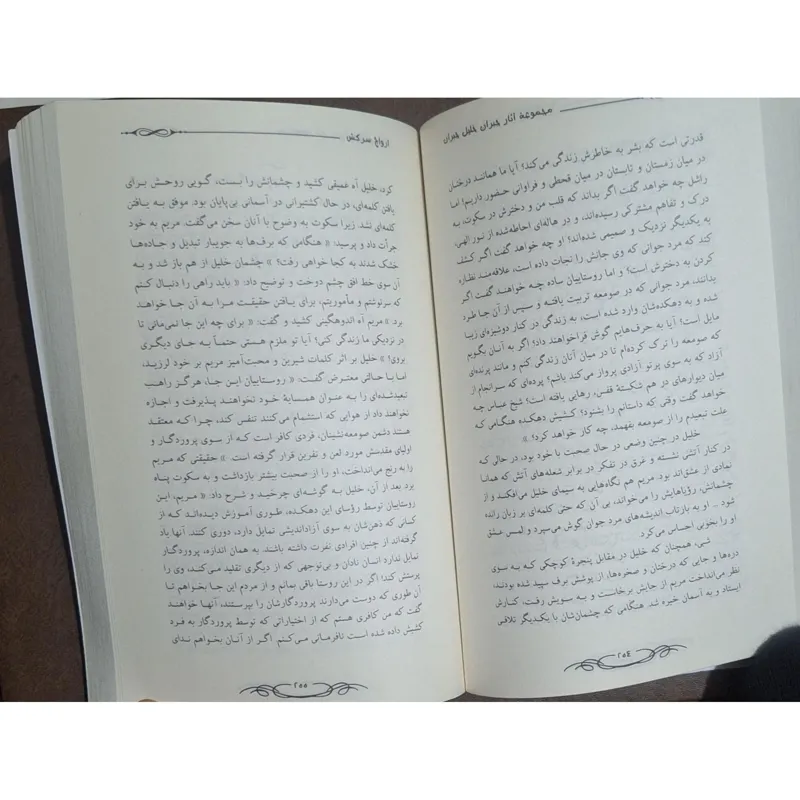 مجموعهٔ آثار جبران خلیل جبران
قدرتی است که بشر به خاطرش زندگی می‌کند؟ آیا ما همانند درختان
در میان زمستان و تابستان در میان قحطی و فراوانی حضور داریم؟ اما
راشل چه خواهد گفت اگر بداند که قلب من و دخترش در سکوت، به
درک و تفاهم مشترکی رسیده‌اند، و در هاله‌ای احاطه‌شده از نور الهی،
به یکدیگر نزدیک و صمیمی شده‌اند؟ او چه خواهد گفت اگر کشف
کند که مرد جوانی که وی جانش را نجات داده است، علاقه‌مند نظاره
کردن به دخترش است؟ و اما روستاییان ساده چه خواهند گفت اگر
بدانند، مرد جوانی که در صومعه تربیت یافته و سپس از آن جا طرد
شده و به دهکده‌شان وارد شده است، به زندگی در کنار دوشیزه‌ای زیبا
مایل است؟ آیا به حرف‌هایم گوش فراخواهند داد؟ اگر به آنان بگویم
که صومعه را ترک کرده‌ام تا در میان آنان زندگی کنم و مانند پرنده‌ای
آزاد که به سوی پرتو آزادی پرواز می‌کند باشم؟ پرده‌ای که سرانجام از
میان دیوارهای در هم شکستهٔ قفس، رهایی یافته است؟ شیخ عباس چه
خواهد گفت وقتی که داستانم را بشنود؟ کشیش دهکده هنگامی که
علت تبعیدم را از صومعه بفهمد، چه کار خواهد کرد؟ »
خلیل در چنین وضعی در حال صحبت با خود بود، در حالی که
در کنار آتش نشسته و غرق در تفکر در برابر شعله‌های آتش که همانا
نمادی از عشق‌اند بود. مریم هم نگاه‌هایی به سیمای خلیل می‌افکند و از
چشمانش، رؤیاهایش را می‌خواند، بی آن که حتی کلمه‌ای بر زبان رانده
شود ... او به بازتاب اندیشه‌های مرد جوان گوش می‌سپرد و لمس عشق
او را بخوبی احساس می‌کرد.
شبی، همچنان که خلیل در مقابل پنجرهٔ کوچکی که به سوی
دره‌ها و جایی که درختان و صخره‌ها، از پوشش برف سپید شده بودند،
نظر می‌انداخت مریم از جایش برخاست و به سویش رفت، کنارش
ایستاد و به آسمان خیره شد. هنگامی که چشمان‌شان با یکدیگر تلاقی
۲۵۴
ارواح سرکش
کرد، خلیل آه عمیقی کشید و چشمانش را بست، گویی روحش برای
یافتن کلمه‌ای، در حال کشتیرانی در آسمانی بی‌پایان بود. موفق به یافتن
کلمه‌ای نشد. زیرا سکوت به وضوح با آنان سخن می‌گفت. مریم به خود
جرأت داد و پرسید: « هنگامی که برف‌ها به جویبار تبدیل و جاده‌ها
خشک شدند به کجا خواهی رفت؟ » چشمان خلیل از هم باز شد و به
آن سوی خط افق چشم دوخت و توضیح داد: « باید راهی را دنبال کنم
که سرنوشتم و مأموریتم، برای یافتن حقیقت مرا به آن جا خواهد
برد.» مریم آه اندوهگینی کشید و گفت: « برای چه این جا نمی‌مانی تا
در نزدیکی ما زندگی کنی؟ آیا تو ملزم هستی حتماً به جای دیگری
بروی؟ » خلیل بر اثر کلمات شیرین و محبت‌آمیز مریم بر خود لرزید،
اما با حالتی معترض گفت: « روستاییان این جا، هرگز راهب
تبعیدشده‌ای را به عنوان همسایهٔ خود نخواهند پذیرفت و اجازه
نخواهند داد از هوایی که استشمام می‌کنند تنفس کند، چرا که معتقد
هستند دشمن صومعه‌نشینان، فردی کافر است که از سوی پروردگار و
اولیای مقدسش مورد لعن و نفرین قرار گرفته است. » حقیقتی که مریم
را به رنج می‌انداخت، او را از صحبت بیشتر بازداشت و به سکوت پناه
برد بعد از آن، خلیل به گوشه‌ای چرخید و شرح داد: « مریم، این
روستاییان توسط رؤسای این دهکده، طوری آموزش دیده‌اند که از
کسانی که ذهن‌شان به سوی آزاداندیشی تمایل دارد، دوری کنند. آنها یاد
گرفته‌اند از چنین افرادی نفرت داشته باشند. به همان اندازه، پروردگار
تمایل ندارد انسان نادان و بی‌توجهی که از دیگری تقلید می‌کند، وی را
پرستش کند؛ اگر در این روستا باقی بمانم و از مردم این جا بخواهم تا
آن طوری که دوست می‌دارند پروردگارشان را بپرستند، آنها خواهند
گفت که من کافری هستم که از اختیاراتی که توسط پروردگار به فرد
کشیش داده شده است نافرمانی می‌کنم. اگر از آنان بخواهم ندای
۲۵۵